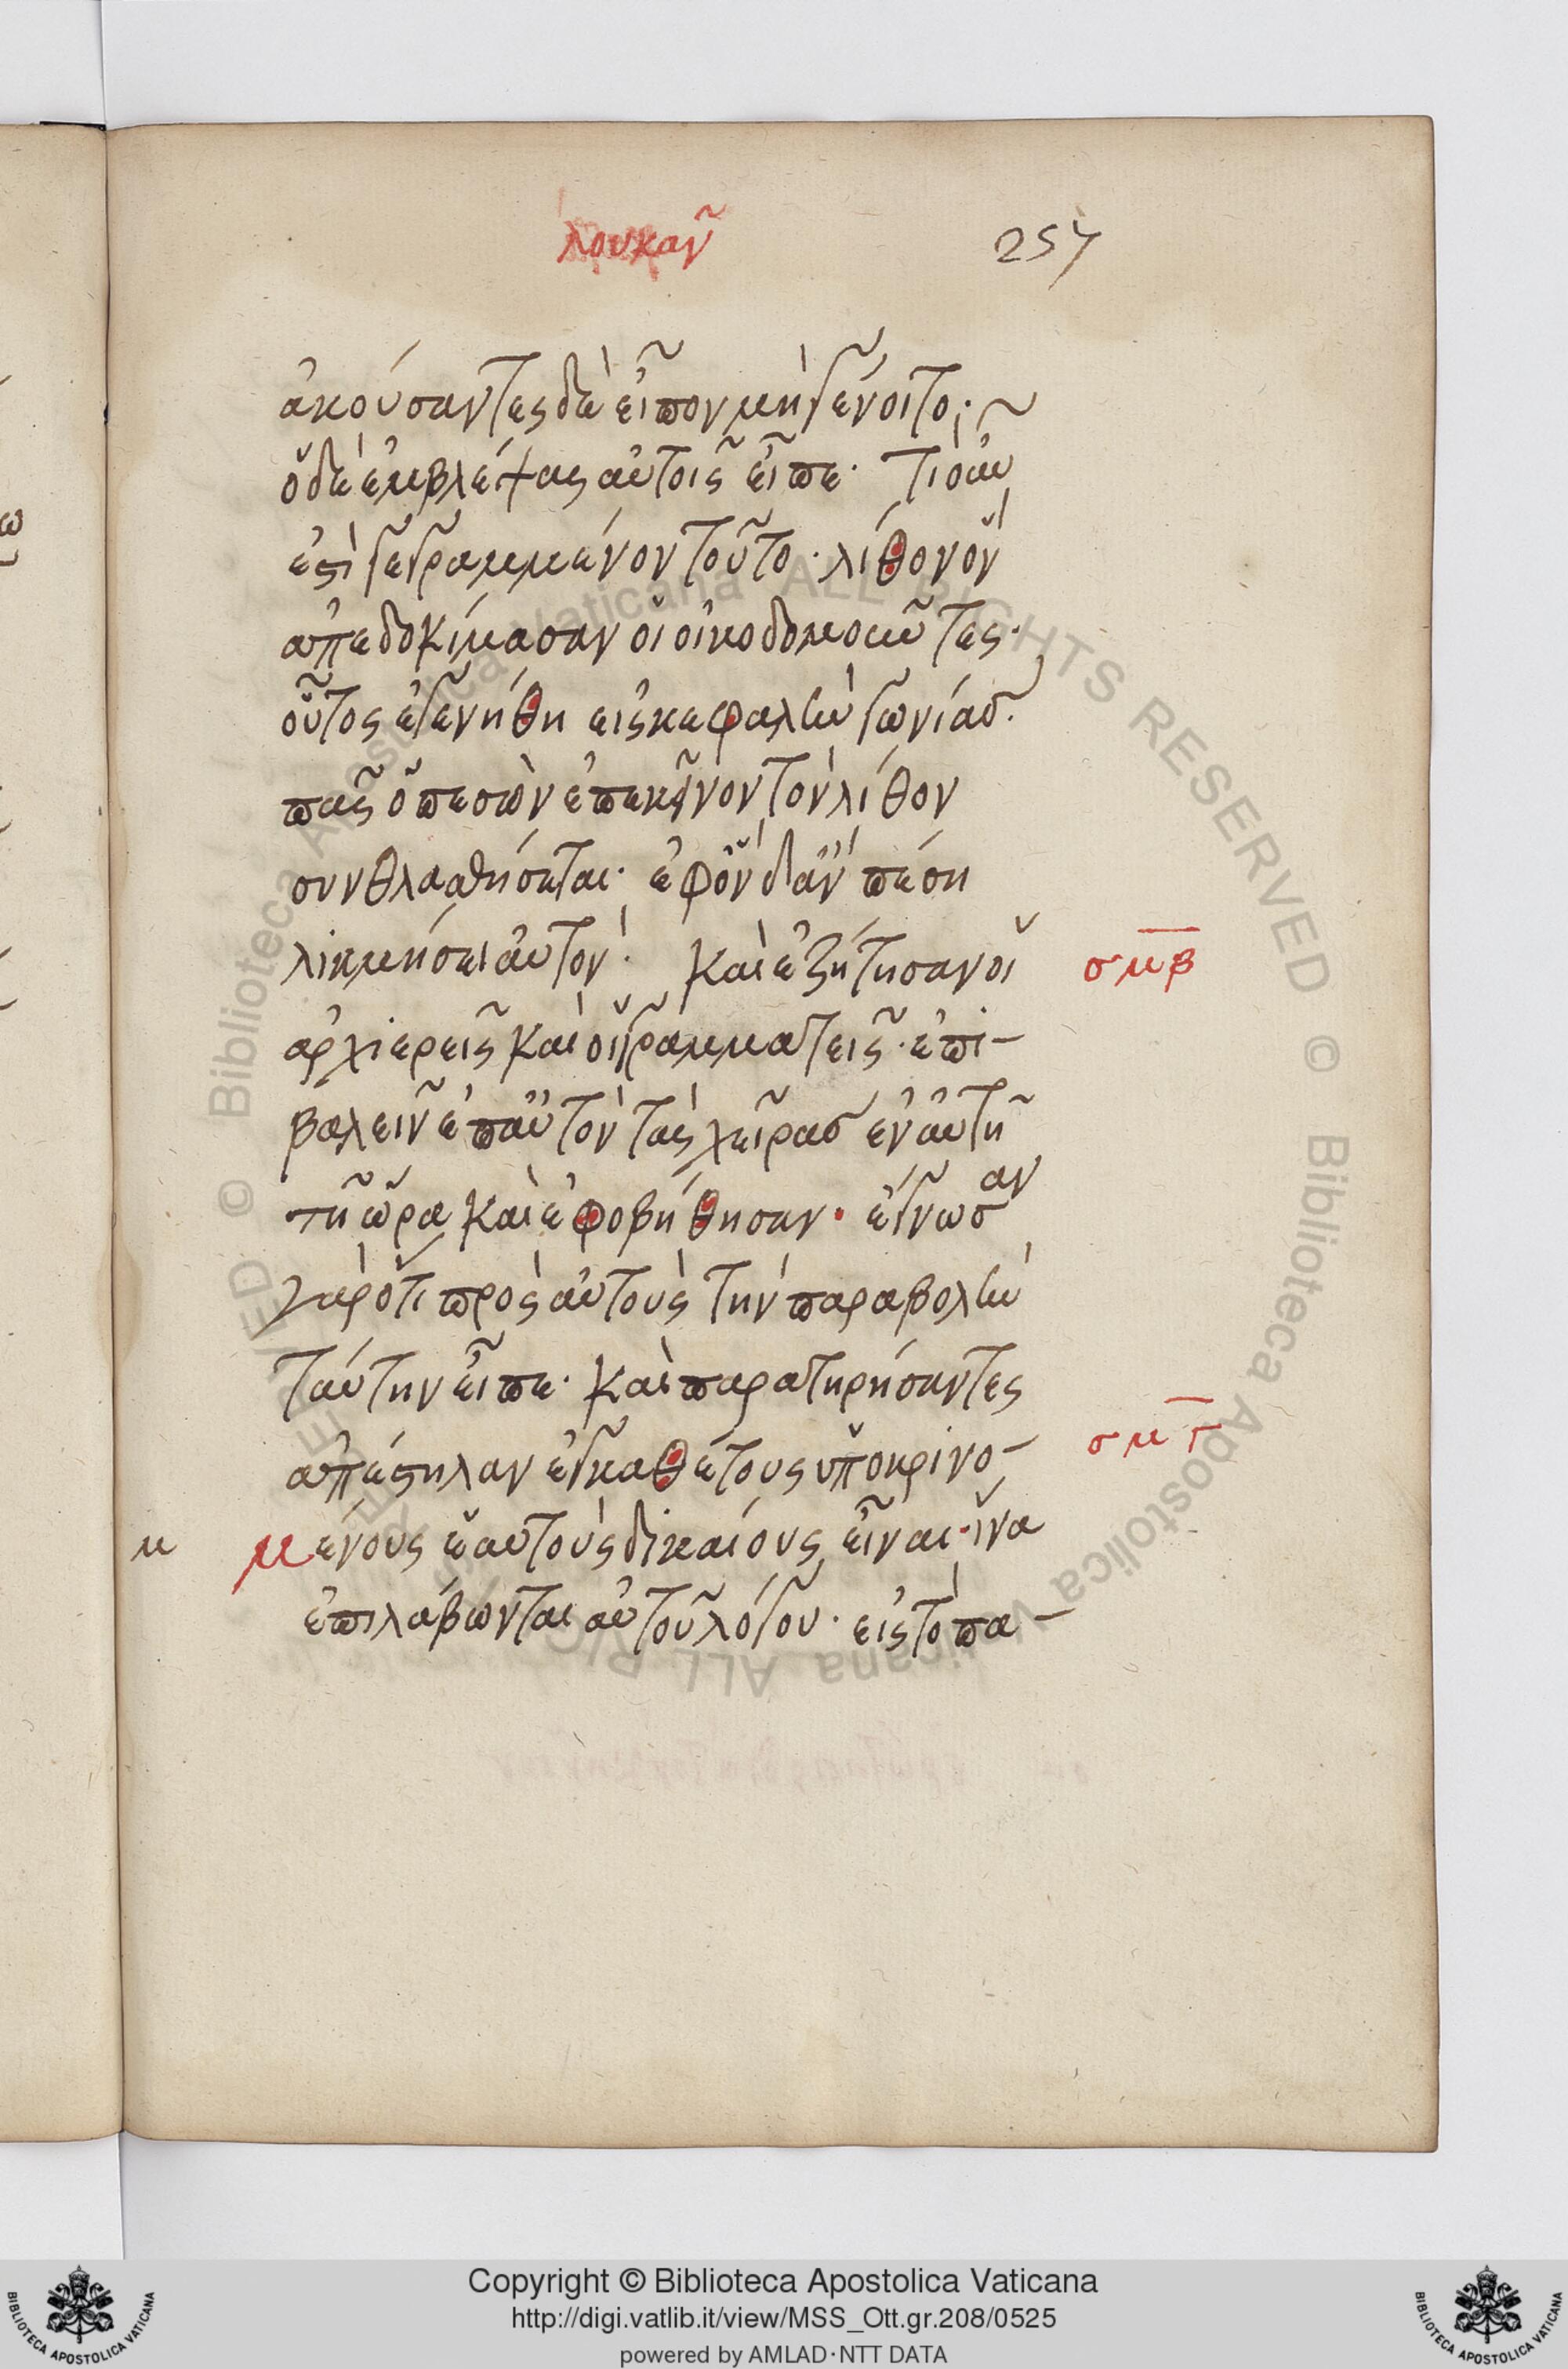 λουκᾶν
257
ἀκούσαντες δὲ εἶπον μὴ γένοιτο·
ὁ δὲ ἐμβλέψας αὐτοῖς εἶπε· τί οὖν
ἐστὶ γεγραμμένον τοῦτο· λίθον ὃν
ἀπεδοκίμασαν οἱ οἰκοδομοῦντες·
οὗτος ἐγενήθη εἰς κεφαλὴν γωνίασ·
πᾶς ὁ πεσὼν ἐπ ἐκεῖνον τὸν λίθον
συνθλασθήσεται· ἐφ ὃν δ ἂν πέση
λικμήσει αὐτόν· καὶ ἐζήτησαν οἱ
σμβ
ἀρχιερεῖς καὶ οἱ γραμματεῖς· ἐπι-
βαλεῖν ἐπ αὐτὸν τὰς χεῖρασ ἐν αὐτῆ
τῆ ὥρα καὶ ἐφοβήθησαν· ἔγνωσαν
γὰρ ὅτι πρὸς αὐτοὺς τὴν παραβολὴν
ταύτην εἶπε· καὶ παρατηρήσαντες
ἀπέστηλαν ἐγκαθέτους ὑποκρινο-
σμγ
μ
μένους ἑαυτοὺς δικαίους εἶναι· ἵνα
ἐπιλάβωνται αὐτοῦ λόγου· εἰς τὸ πα-
© Biblioteca Apostolica Vaticana ALL RIGHTS RESERVED © Biblioteca Apostolica Vaticana ALL RIGHTS RESERVED
Copyright © Biblioteca Apostolica Vaticana
http://digi.vatlib.it/view/MSS_Ott.gr.208/0525
powered by AMLAD·NTT DATA
BIBLIOTECA APOSTOLICA VATICANA
BIBLIOTECA APOSTOLICA VATICANA